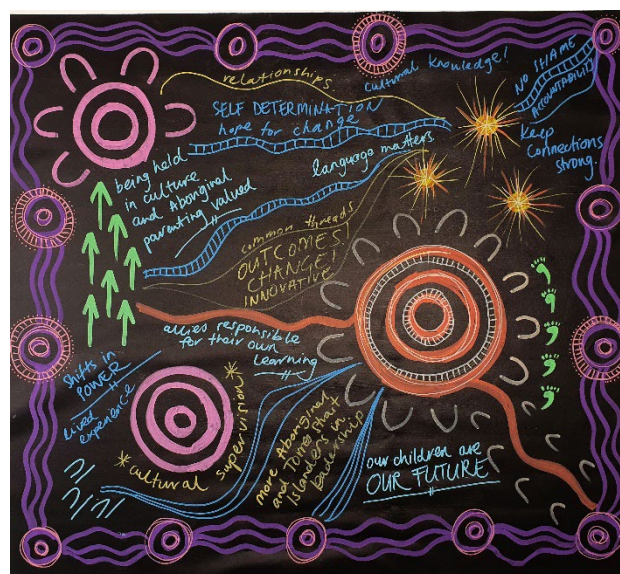 relationships
cultural knowledge!
NO SHAME
ACCOUNTABILITY
SELF DETERMINATION
hope for change
keep
connections
strong.
language matters
being held
in culture
and Aboriginal
parenting valued
common threads
OUTCOMES!
CHANGE!
INNOVATIVE
allies responsible
for their own
learning
shifts in
POWER
lived
experience
*cultural supervision*
more Aboriginal
and Torres Strait
Islanders in
leadership
our children are
OUR FUTURE